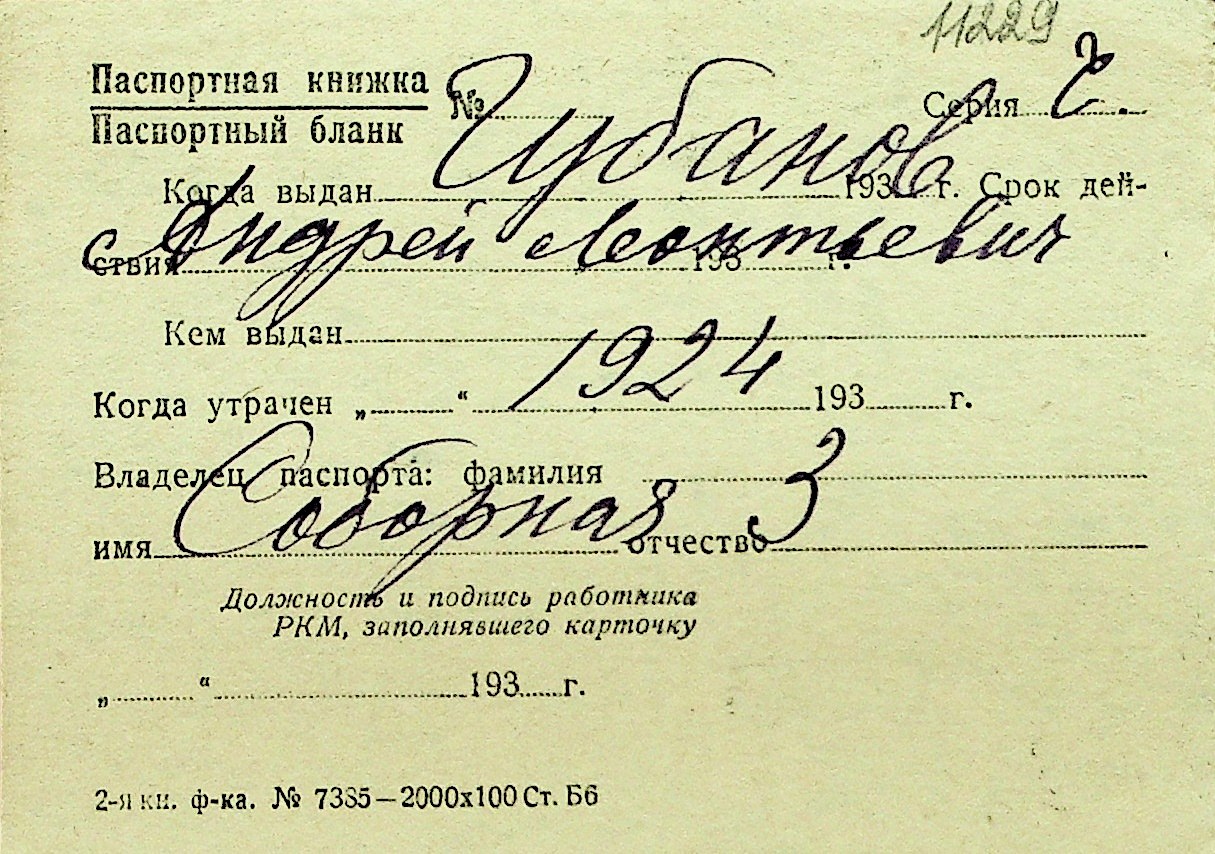 11229
Паспортная книжка
Паспортный бланк
№ Серия Ч.
Чубанов
Когда выдан 193 г. Срок дей-
Андрей Леонтьевич
ствия 193 г.
Кем выдан
1924
Когда утрачен „ “ 193 г.
Владелец паспорта: фамилия
Соборная 3
имя отчество
Должность и подпись работника
РКМ, заполнявшего карточку
„ “ 193 г.
2-я кн. ф-ка. № 7385—2000х100 Ст. Б6